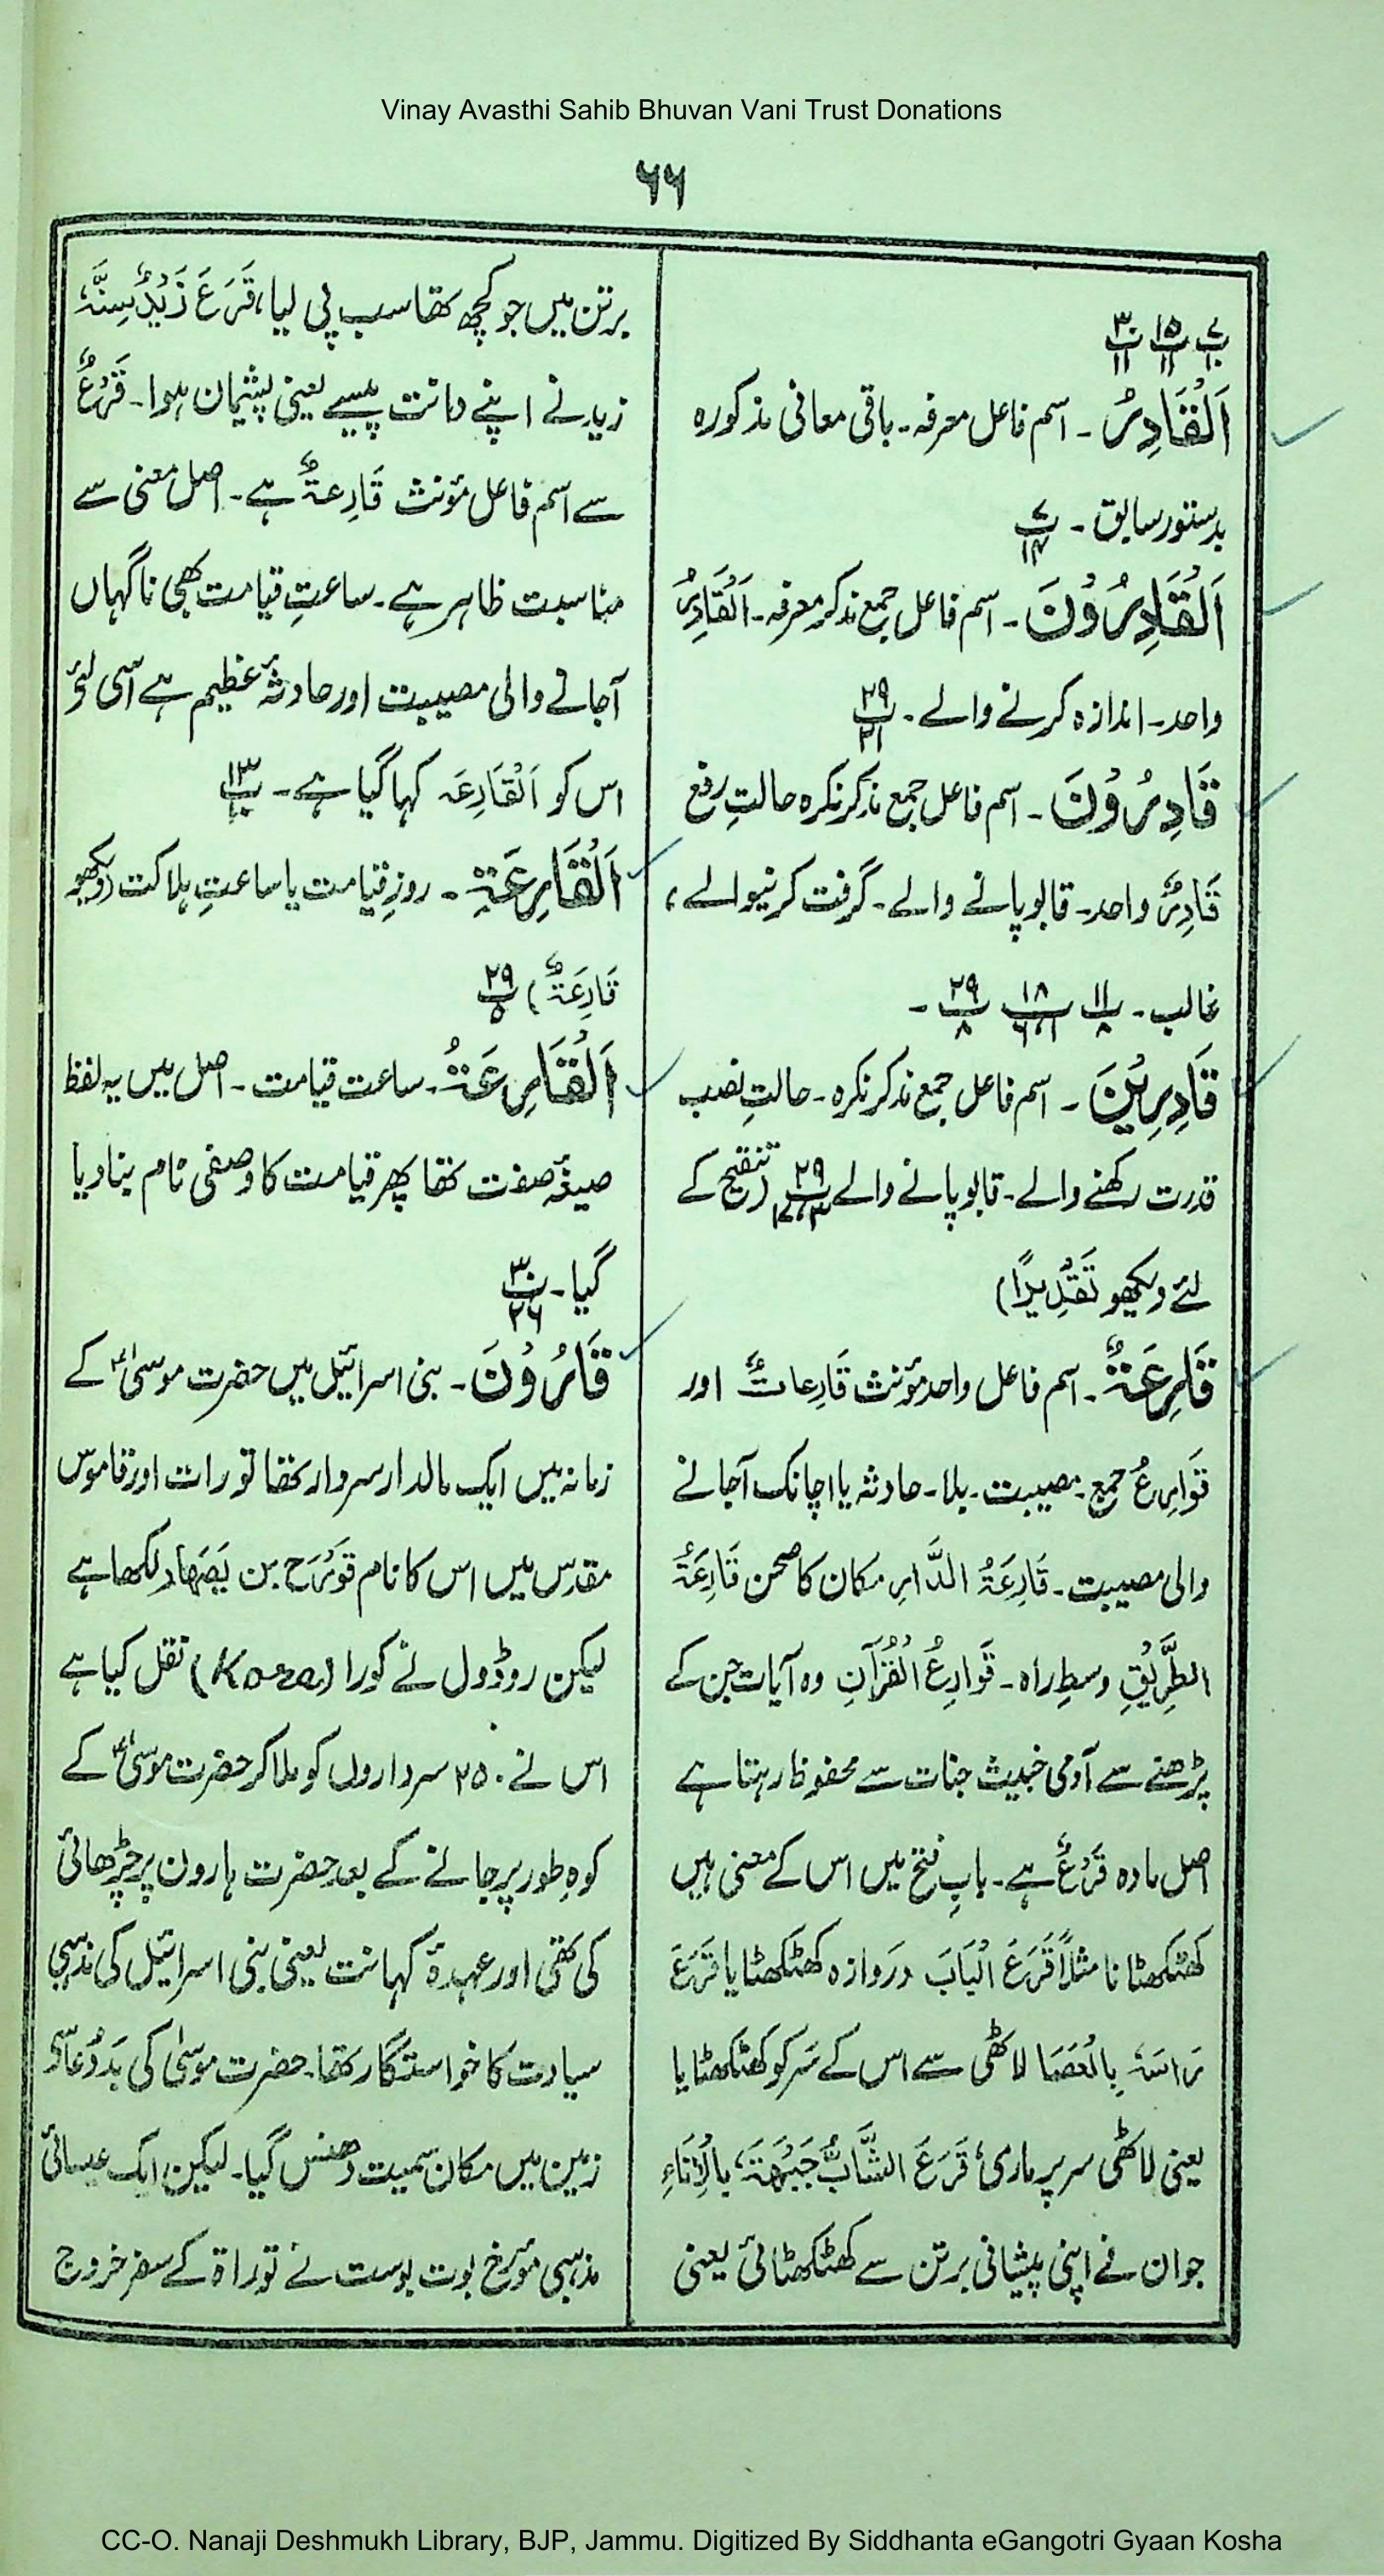 Vinay Avasthi Sahib Bhuvan Vani Trust Donations
۶۶
پ۷/۱۰ پ۱۵/۱۱ پ۳۰/۱۱
اَلْقَادِرُ۔ اسم فاعل معرفہ۔ باقی معانی مذکورہ
بدستور سابق۔ پ۷/۱۴
اَلْقَادِرُوْنَ۔ اسم فاعل جمع مذکر معرفہ۔ اَلْقَادِرُ
واحد۔ اندازہ کرنے والے۔ پ۲۹/۲۱
قَادِرُوْنَ۔ اسم فاعل جمع مذکر نکرہ حالتِ رفع
قَادِرٌ واحد۔ قابو پانے والے۔ گرفت کرنیوالے،
غالب۔ پ۱۱/۸ پ۱۸/۶،۱ پ۲۹/۸ ۔
قَادِرِیْنَ۔ اسم فاعل جمع مذکر نکرہ۔ حالتِ نصب
قدرت رکھنے والے۔ قابو پانے والے پ۲۹/۱۷،۳ (تنقیح کے
لئے دیکھو تَقْدِیْرًا)
قَارِعَۃٌ۔ اسم فاعل واحد مؤنث قَارِعاتٌ اور
قَوَارِعُ جمع۔ مصیبت۔ بلا۔ حادثہ یا اچانک آجانے
والی مصیبت۔ قَارِعَۃُ الدَّارِ مکان کا صحن قَارِعَۃُ
الطَّرِیْقِ وسطِ راہ۔ قَوَارِعُ الْقُرْآنِ وہ آیات جن کے
پڑھنے سے آدمی خبیث جنات سے محفوظ رہتا ہے
اصل مادہ قَرْعٌ ہے۔ بابِ فتح میں اس کے معنی ہیں
کھٹکھٹانا مثلاً قَرَعَ الْبَابَ دروازہ کھٹکھٹایا قَرَعَ
رَاسَہٗ بِالْعَصَا لاٹھی سے اس کے سَر کو کھٹکھٹایا
یعنی لاٹھی سر پر ماری، قَرَعَ الشَّابُّ جَبْھَتَہٗ بِالْاِنَاءِ
جوان نے اپنی پیشانی برتن سے کھٹکھٹائی یعنی
برتن میں جو کچھ تھا سب پی لیا، قَرَعَ زَیْدٌ سِنَّہٗ
زید نے اپنے دانت پیسے یعنی پشیمان ہوا۔ قَرْعٌ
سے اسم فاعل مؤنث قَارِعۃٌ ہے۔ اصل معنی سے
مناسبت ظاہر ہے۔ ساعتِ قیامت بھی ناگہاں
آجانے والی مصیبت اور حادثۂ عظیم ہے اسی لئے
اس کو اَلْقَارِعَہ کہا گیا ہے۔ پ۱۳/۱۰
اَلْقَارِعَۃِ۔ روزِ قیامت یا ساعتِ ہلاکت (دیکھو
قَارِعَۃٌ) پ۲۹/۵
اَلْقَارِعَۃُ۔ ساعت قیامت۔ اصل میں یہ لفظ
صیغۂ صفت تھا پھر قیامت کا وصفی نام بنا دیا
گیا۔ پ۳۰/۲۶
قَارُوْنَ۔ بنی اسرائیل میں حضرت موسیٰؑ کے
زمانہ میں ایک مالدار سردار تھا تورات اور قاموس
مقدس میں اس کا نام قَوْرَح بن یَصْھَار لکھا ہے
لیکن روڈول نے کورا (Kora) نقل کیا ہے
اس نے ۲۵۰ سرداروں کو ملا کر حضرت موسیٰؑ کے
کوہِ طور پر جانے کے بعد حضرت ہارون پر چڑھائی
کی تھی اور عہدۂ کہانت یعنی بنی اسرائیل کی مذہبی
سیادت کا خواستگار تھا۔ حضرت موسیٰ کی بَددُعا سے
زمین میں مکان سمیت دھنس گیا۔ لیکن ایک عیسائی
مذہبی مؤرخ بوت بوست نے توراۃ کے سفر خروج
CC-O. Nanaji Deshmukh Library, BJP, Jammu. Digitized By Siddhanta eGangotri Gyaan Kosha